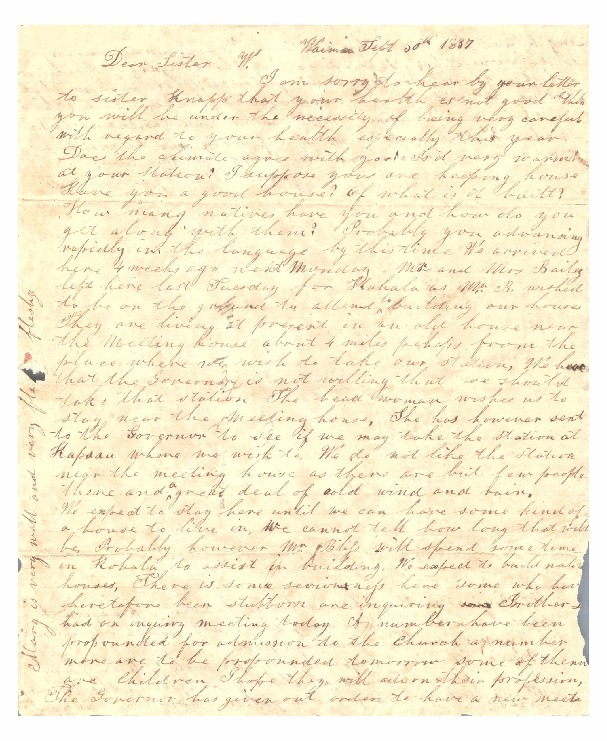 Waimea Sept 30th 1837
Dear Sister W.
I am sorry to hear by your letter
to sister Knapp that your health is not good
you will be under the necessity of being very careful
with regard to your health especially this year
Does the climate agree with you? Is it very warm
at your station? I suppose you are keeping house
Have you a good house? of what is it built?
How many natives have you and how do you
get along with them? Probably you advancing
rapidly in the language by this time We arrived
here 4 weeks ago next Monday Mr and Mrs Bailey
left here last Tuesday for Kohala as Mr B. wished
to be on the ground to attend to building our house
They are living at present in an old house near
the Meeting house about 4 miles perhaps from the
place where we wish to take our station, We hear
that the Governor is not willing that we should
take that station The head woman wishes us to
stay near the Meeting house, She has however sent
to the Governor to see if we may take the station at
Kapaau where we wish to. We do not like the station
near the meeting house as there are but few people
there and a great deal of cold wind and rain.
We expect to stay here until we can have some kind of
a house to live in, we cannot tell how long that will
be, Probably however Mr. Bliss will spend some time
in Kohala to assist in building, We expect to build native
houses, There is some seriousness here some who have
heretofore been stubborn are inquiring Brother
had an inquiry meeting today A number have been
propounded for admission to the Church a number
more are to be propounded tomorrow some of them
are children I hope they will adorn their profession,
The Governor has given out orders to have a new meeti
Mary is very well and very fleshy